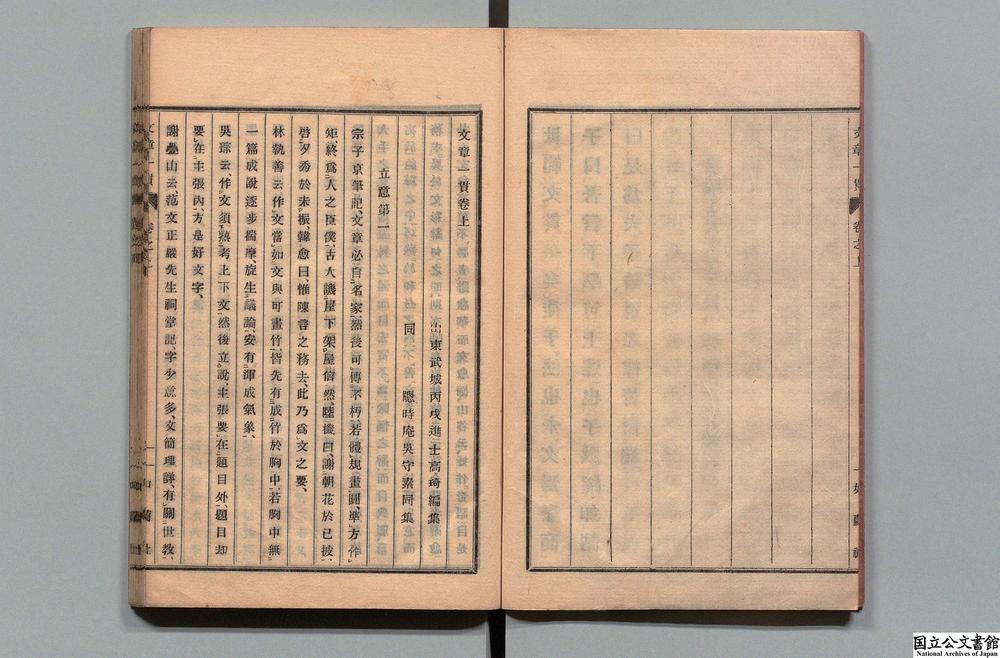 文章一貫卷上
山東武城丙戌進士高琦編集
同 聽時庵吳守素同集
立意第一
宗子京筆記、文章必自名家、然後可傳不朽、若體規畫圓、準方作
矩、終爲人之臣僕、古人譏屋下架屋信然、陸機曰、謝朝花於已披、
啓夕秀於未振、韓愈曰、惟陳言之務去、此乃爲文之要、
林執善云、作文當如文與可畫竹、皆先有成竹於胸中、若胸中無
一篇成說、逐步揣摩、旋生議論、安有渾成氣象、
吳琮云、作文須熟考上下文、然後立說、主張要在題目外、題目却
要在主張內、方是好文字、
謝疊山云、范文正嚴先生祠堂記、字少意多、文簡理詳、有關世教、
文章一貫 卷之上
國立公文書館
National Archives of Japan